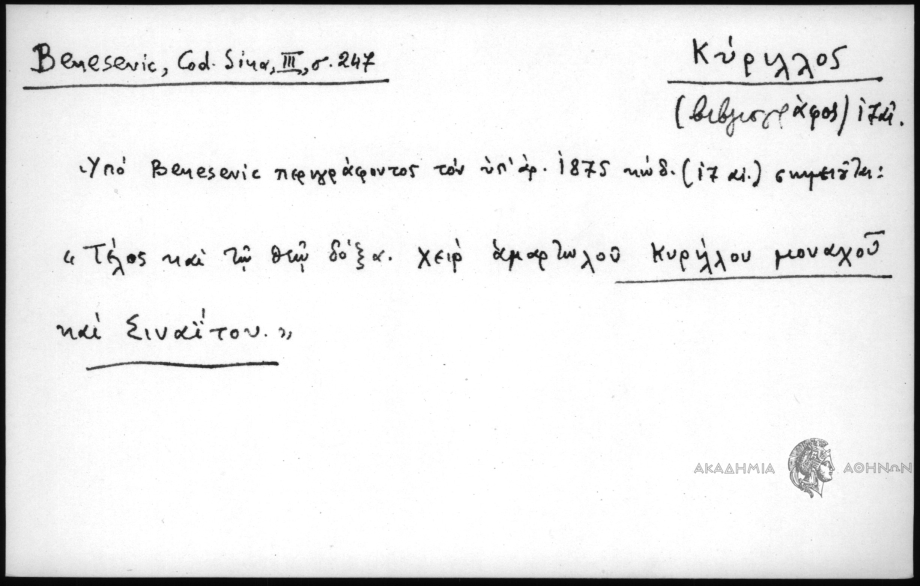 Benesevic, Cod. Sina, III, σ. 247
Κύριλλος
(βιβλιογράφος) ιζ αἰ.
Ὑπό Benesevic περιγράφοντος τόν ὑπ' ἀρ. 1875 κώδ. (17 αἰ.) σημειοῦται:
«Τέλος καί τῷ θεῷ δόξα. χείρ ἁμαρτωλοῦ Κυρίλλου μοναχοῦ
καί Σιναΐτου.»
ΑΚΑΔΗΜΙΑ ΑΘΗΝΩΝ